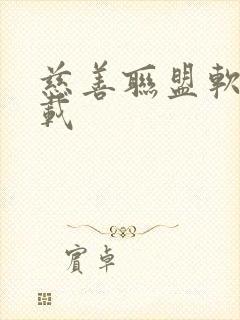 慈善聯盟軟
載
賓卓